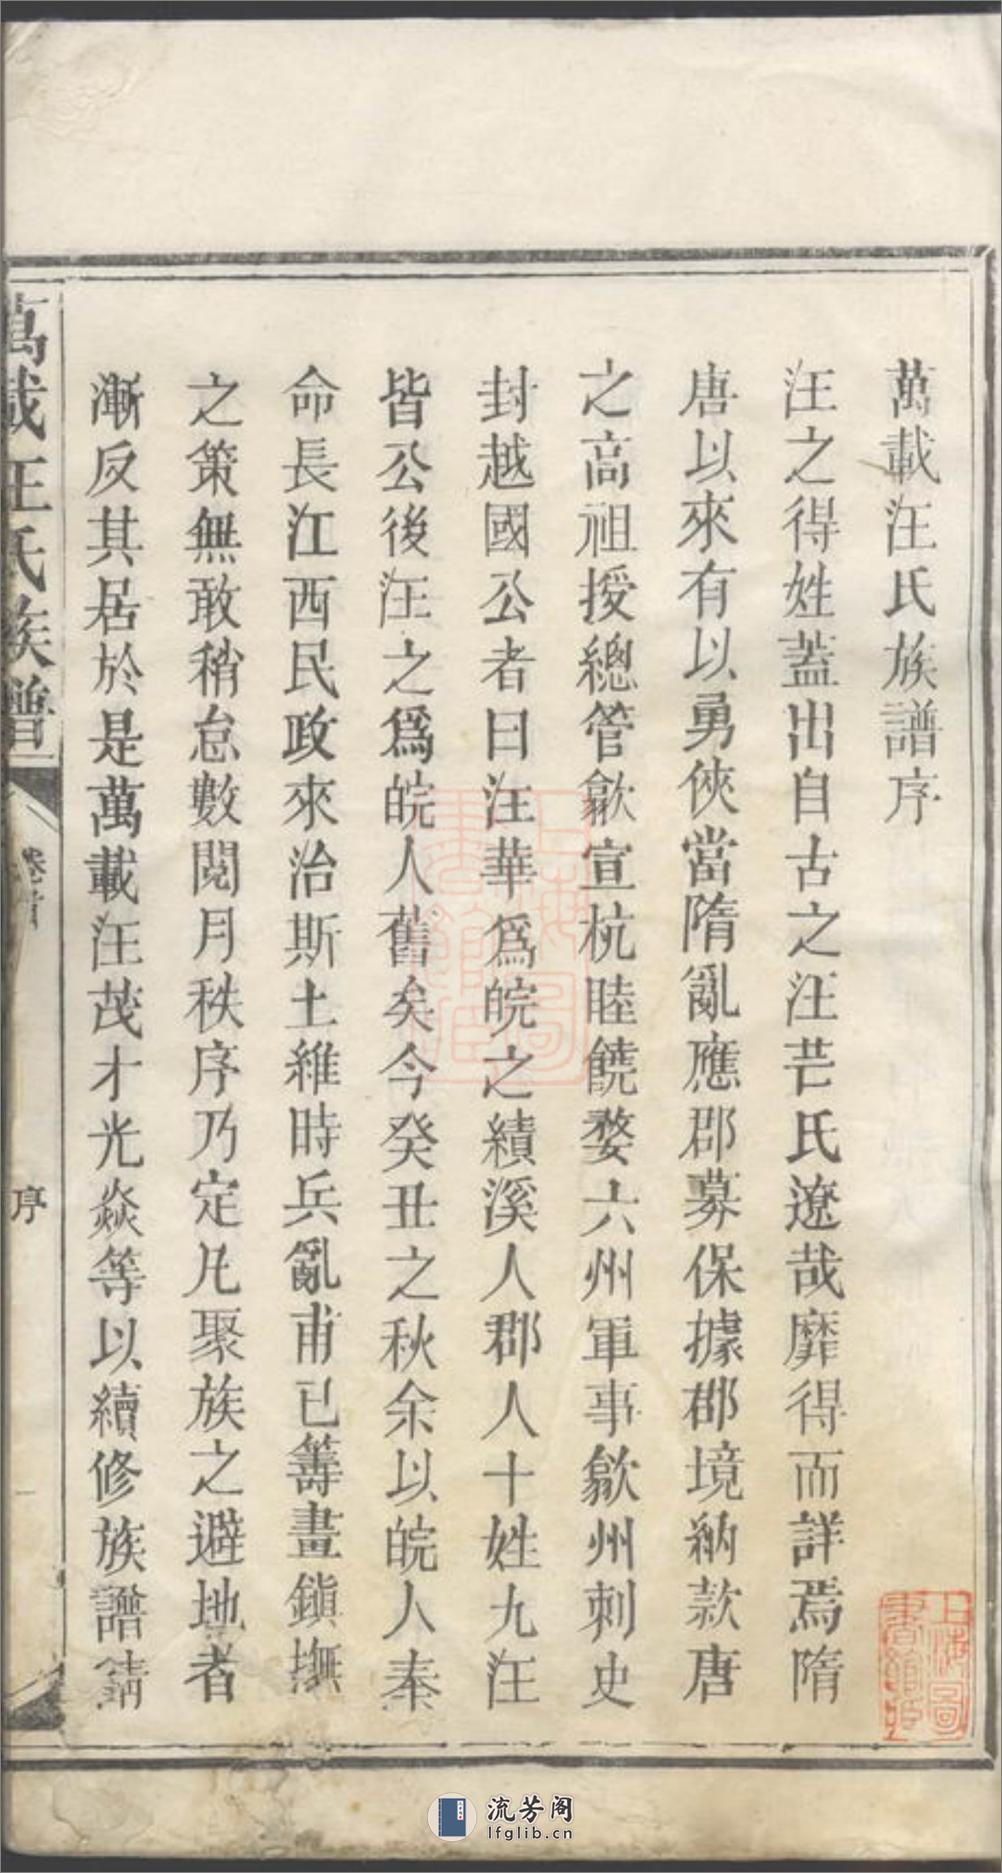 萬載汪氏族譜序
汪之得姓蓋出自古之汪芒氏遼哉靡得而詳焉隋
唐以來有以勇俠當隋亂應郡募保據郡境納款唐
之高祖授總管歙宣杭睦饒婺六州軍事歙州刺史
封越國公者曰汪華爲皖之績溪人郡人十姓九汪
皆公後汪之爲皖人舊矣今癸丑之秋余以皖人奉
命長江西民政來治斯土維時兵亂甫已籌畫鎮撫
之策無敢稍怠數閱月秩序乃定凡聚族之避地者
漸反其居於是萬載汪茂才光焱等以續修族譜請
萬載汪氏族譜
卷首
序
上海圖書館藏
上海圖書館藏
流芳阁
lfglib.cn